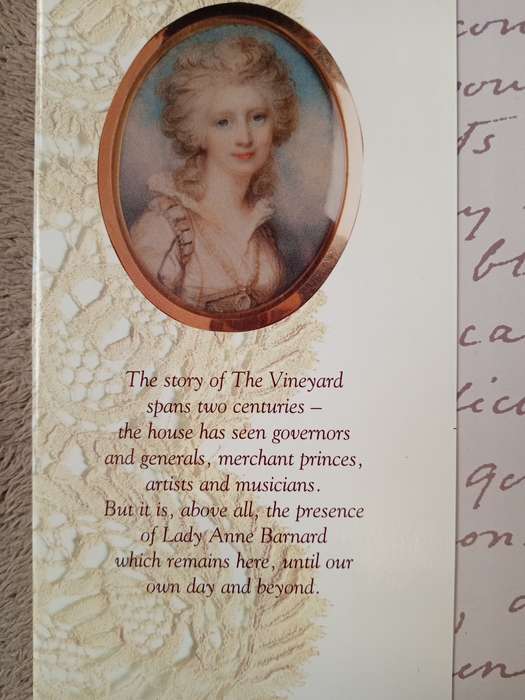 The story of The Vineyard
spans two centuries –
the house has seen governors
and generals, merchant princes,
artists and musicians.
But it is, above all, the presence
of Lady Anne Barnard
which remains here, until our
own day and beyond.